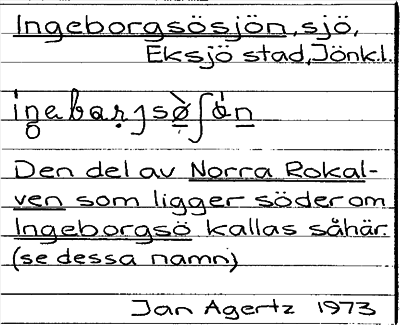 Ingeborgsösjön, sjö,
Eksjö stad, Jönk.l.
Den del av Norra Rokal-
ven som ligger söder om
Ingeborgsö kallas såhär.
(se dessa namn)
Jan Agertz 1973